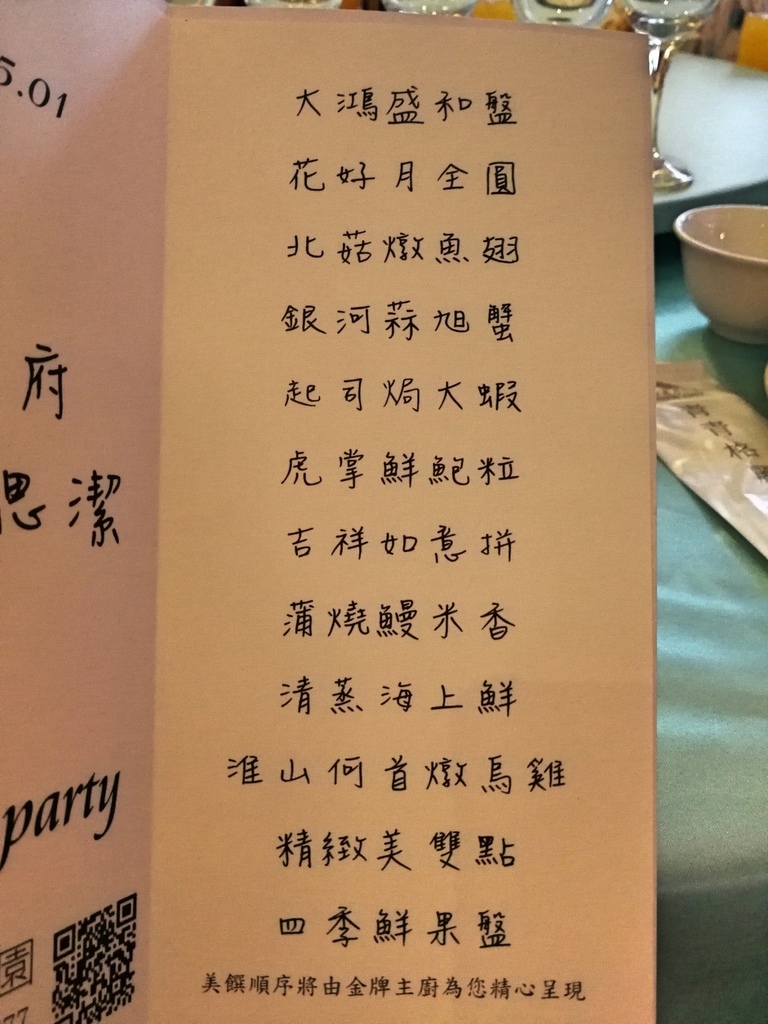 5.01
府
思潔
party
園
77
大鴻盛和盤
花好月全圓
北菇燉魚翅
銀河蒜旭蟹
起司焗大蝦
虎掌鮮鮑粒
吉祥如意拼
蒲燒鰻米香
清蒸海上鮮
淮山何首燉烏雞
精緻美雙點
四季鮮果盤
美饌順序將由金牌主廚為您精心呈現
青青格